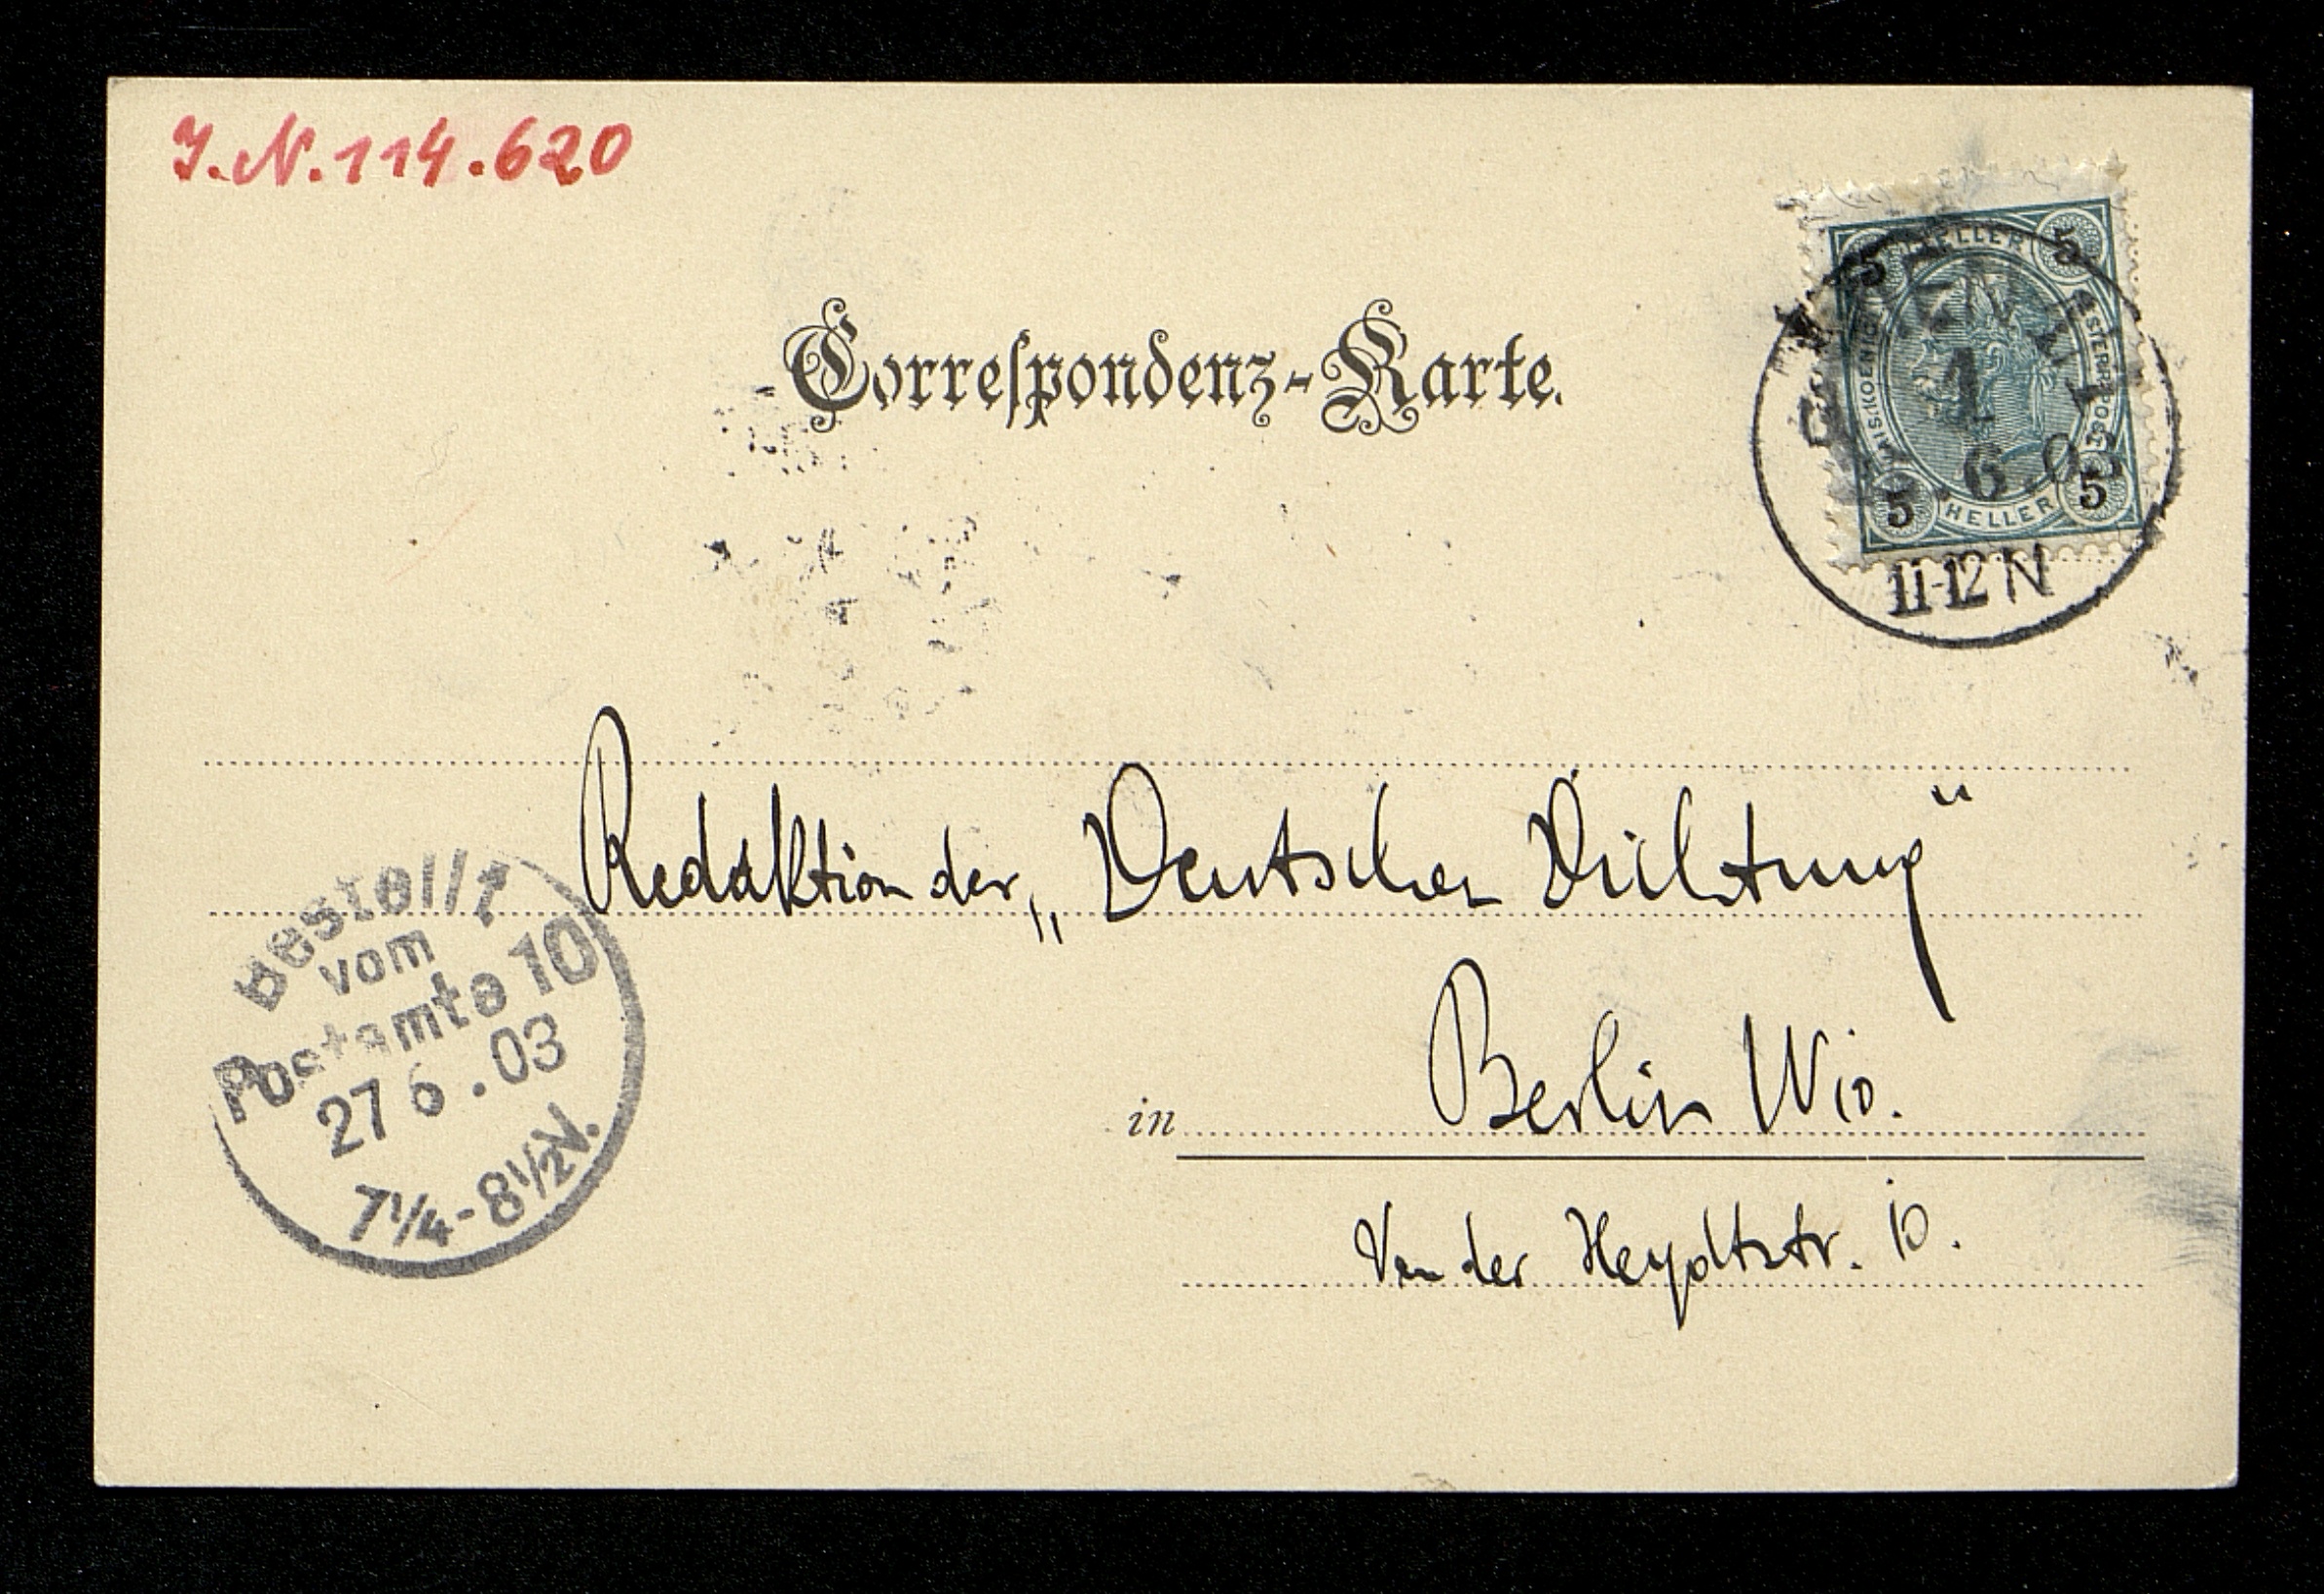 I.N. 114.620
Correspondenz-Karte.
5 HELLER 5
KAIS. KOENIGL. OESTERR. POST
5 HELLER 5
WIEN
1
6.03
11-12 N
Redaktion der „Deutschen Dichtung"
in Berlin W10.
Von der Heydtstr. 10.
Bestellt
vom
Postamte 10
27 6.03
7¼-8½V.